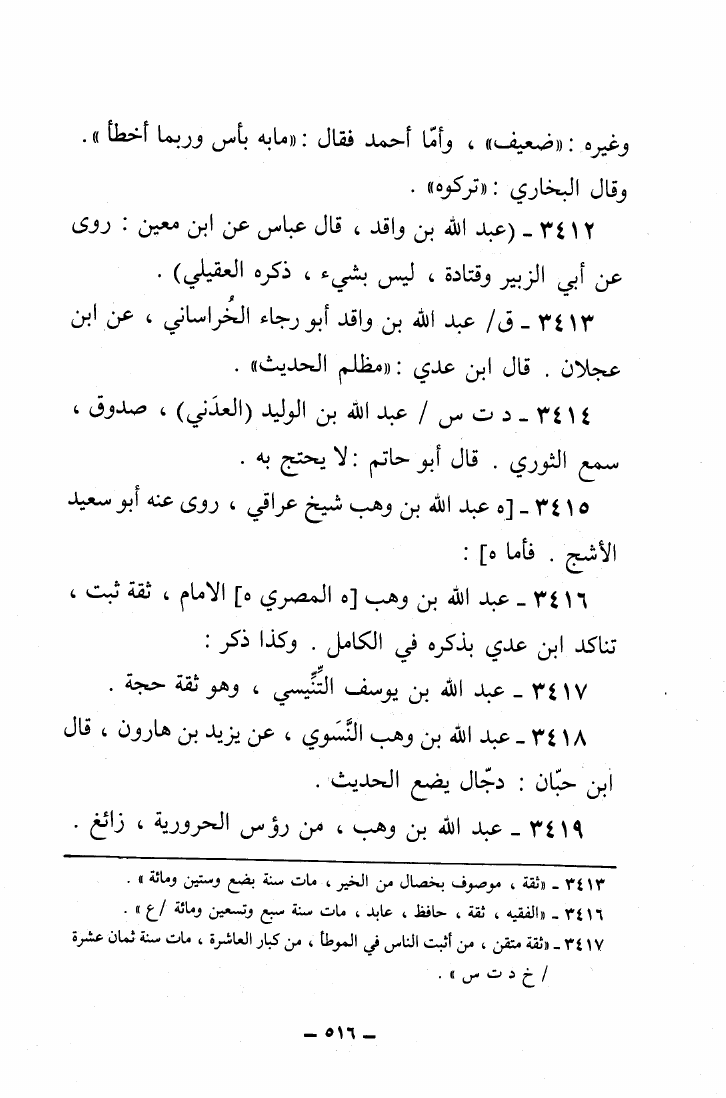 وغيره : «ضعيف» ، وأمّا أحمد فقال : «مابه بأس وربما أخطأ» .
وقال البخاري : «تركوه» .
٣٤١٢ ـ (عبد الله بن واقد ، قال عباس عن ابن معين : روى
عن أبي الزبير وقتادة ، ليس بشيء ، ذكره العقيلي) .
٣٤١٣ ـ ق/ عبد الله بن واقد أبو رجاء الخُراساني ، عن ابن
عجلان . قال ابن عدي : «مظلم الحديث» .
٣٤١٤ ـ د ت س / عبد الله بن الوليد (العدَني) ، صدوق ،
سمع الثوري . قال أبو حاتم : لا يحتج به .
٣٤١٥ ـ [ه عبد الله بن وهب شيخ عراقي ، روى عنه أبو سعيد
الأشج . فأما ه] :
٣٤١٦ ـ عبد الله بن وهب [ه المصري ه] الامام ، ثقة ثبت ،
تناكد ابن عدي بذكره في الكامل . وكذا ذكر :
٣٤١٧ ـ عبد الله بن يوسف التِّنِّيسي ، وهو ثقة حجة .
٣٤١٨ ـ عبد الله بن وهب النَّسَوي ، عن يزيد بن هارون ، قال
ابن حبّان : دجّال يضع الحديث .
٣٤١٩ ـ عبد الله بن وهب ، من رؤس الحرورية ، زائغ .
٣٤١٣ ـ «ثقة ، موصوف بخصال من الخير ، مات سنة بضع وستين ومائة» .
٣٤١٦ ـ «الفقيه ، ثقة ، حافظ ، عابد ، مات سنة سبع وتسعين ومائة /ع» .
٣٤١٧ ـ «ثقة متقن ، من أثبت الناس في الموطأ ، من كبار العاشرة ، مات سنة ثمان عشرة
/ خ د ت س» .
ـ ٥١٦ ـ